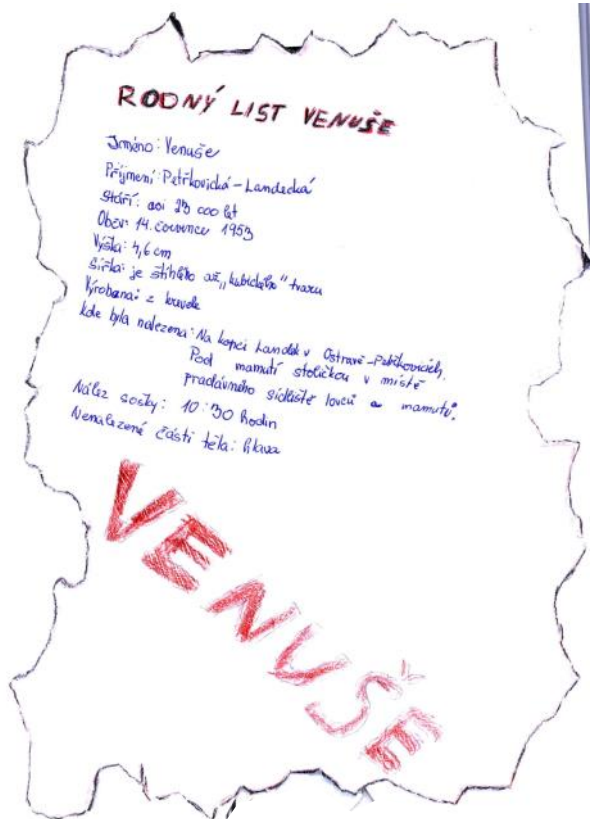 RODNÝ LIST VENUŠE
Jméno: Venuše
Příjmení: Petřkovická-Landecká
Stáří: asi 23 000 let
Objev: 14. července 1953
Výška: 4,6 cm
Šířka: je štíhlého až „kubického" tvaru
Vyrobena: z krevele
Kde byla nalezena: Na kopci Landek v Ostravě-Petřkovicích.
Pod mamutí stoličkou v místě
pradávného sídliště lovců a mamutů.
Nález sošky: 10:30 hodin
Nenalezené části těla: hlava
VENUŠE